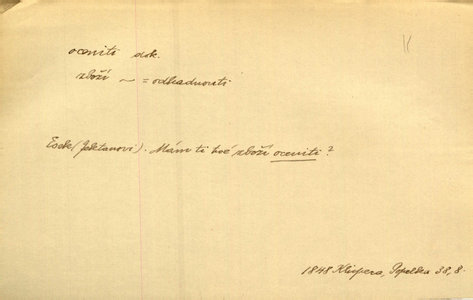 oceniti dok.
zboží ~ = odhadnouti
Esek (Jektanovi). Mám ti tvé zboží oceniti?
1848 Klicpera, Popelka 38, 8.